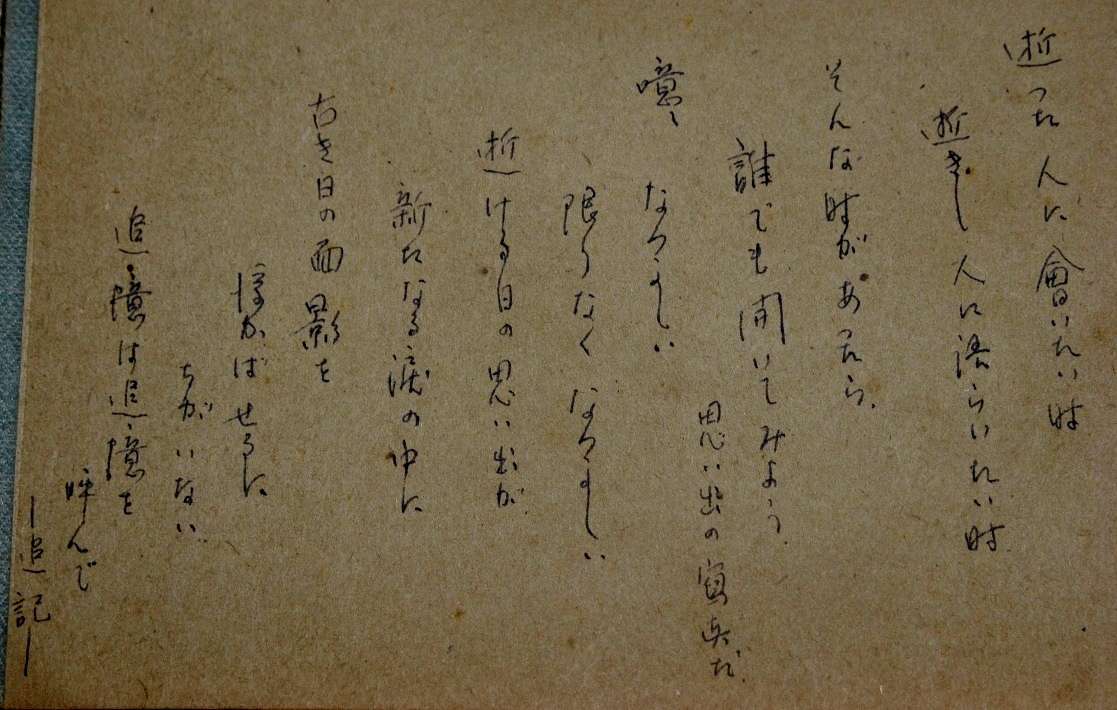 逝った人に會いたい時
逝きし人に語らいたい時
そんな時があったら、
誰でも開いてみよう、
思い出の寫真だ、
噫、なつかしい
限りなくなつかしい
逝ける日の思い出が
新たなる涙の中に
古き日の面影を
浮かばせるに
ちがいない、
追憶は追憶を
呼んで
―追記―